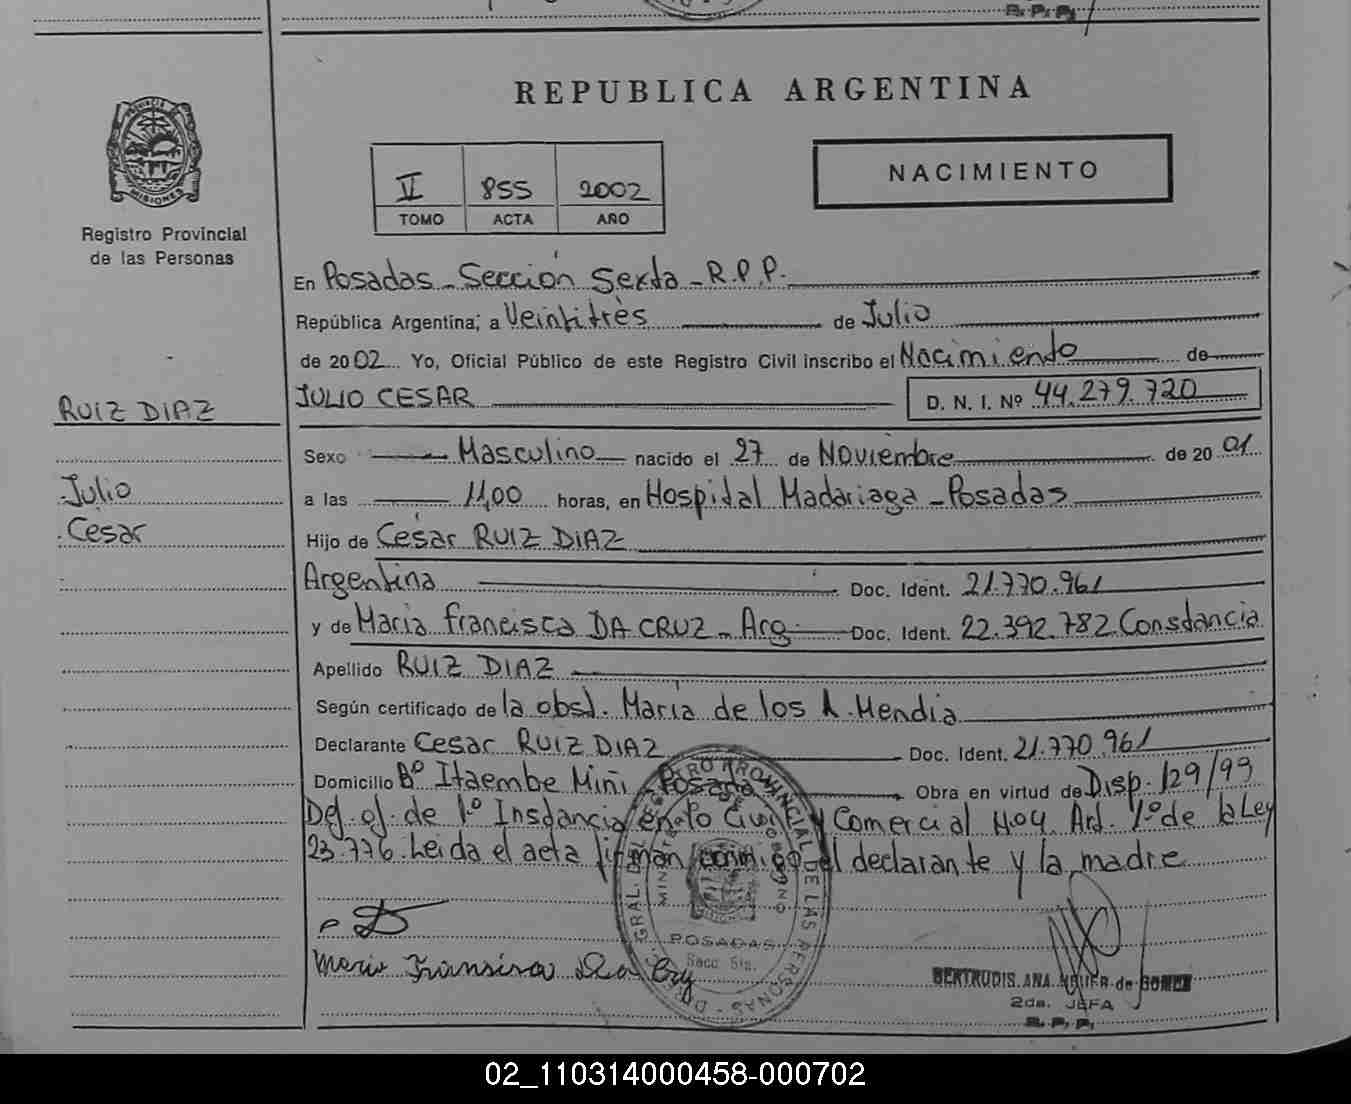 R. P. P.
REPUBLICA ARGENTINA
PROVINCIA
MISIONES
Registro Provincial
de las Personas
II 855 2002
TOMO ACTA AÑO
NACIMIENTO
En Posadas - Sección Sexta - R.P.P.
República Argentina, a Veintitrés de Julio
de 2002 Yo, Oficial Público de este Registro Civil inscribo el Nacimiento de
RUIZ DIAZ
JULIO CESAR D. N. I. Nº 44.279.720
Sexo Masculino nacido el 27 de Noviembre de 2001
Julio
a las 11,00 horas, en Hospital Madariaga - Posadas
César
Hijo de César RUIZ DIAZ
Argentina Doc. Ident. 21.770.961
y de María francisca DA CRUZ - Arg. Doc. Ident. 22.392.782 Constancia
Apellido RUIZ DIAZ
Según certificado de la obst. María de los A. Mendia
Declarante Cesar RUIZ DIAZ Doc. Ident. 21.770.961
Domicilio Bº Itaembe Miní - Posadas Obra en virtud de Disp. 129/99
Def. of. de 1º Instancia en lo Civil y Comercial Nº4. Art. 1º de la Ley
23.776. Leida el acta firman conmigo el declarante y la madre
POSADAS
Secc. 6ta.
GERTRUDIS ANA de GOMEZ
2da. JEFA
R. P. P.
02_110314000458-000702